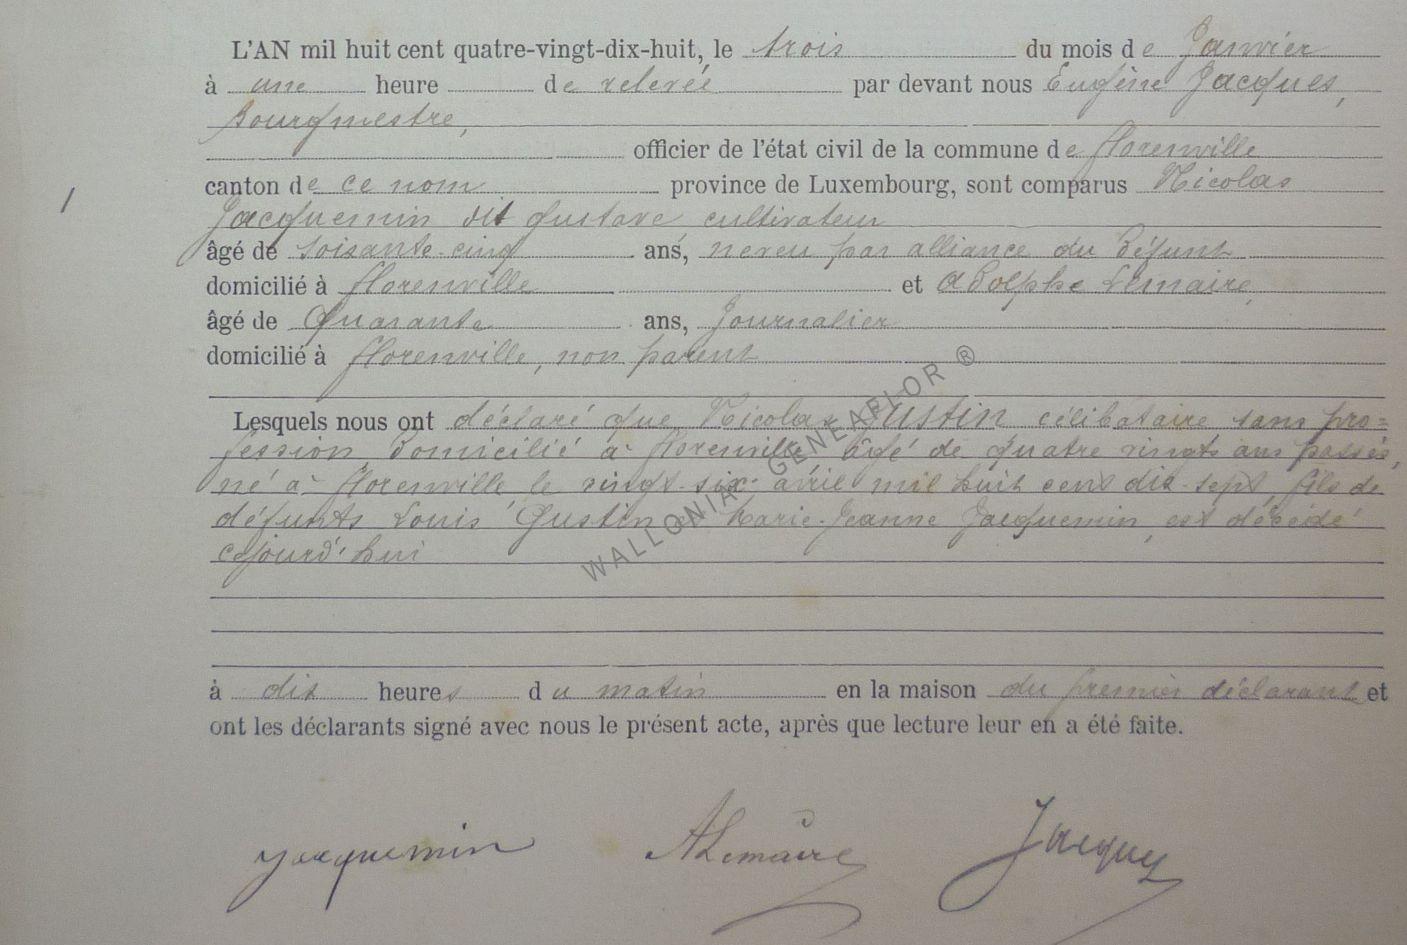 L'AN mil huit cent quatre-vingt-dix-huit, le trois du mois de Janvier
à une heure de relevée par devant nous Eugène Jacques,
Bourgmestre,
officier de l'état civil de la commune de florenville
canton de ce nom province de Luxembourg, sont comparus Nicolas
1
Jacquemin dit Gustave cultivateur
âgé de soisante-cinq ans, neveu par alliance du défunt
domicilié à florenville et Adolphe Lemaire,
âgé de Quarante ans, Journalier
domicilié à florenville, non parent
Lesquels nous ont déclaré que Nicolas Gustin célibataire sans pro=
fession domicilié à florenville âgé de quatre vingts ans passés,
né à florenville le vingt-six avril mil huit cent dix-sept, fils de
défunts Louis Gustin & Marie-Jeanne Jacquemin, est décédé
cejourd'hui
WALLONIA GENEAFLOR ®
à dix heures du matin en la maison du premier déclarant et
ont les déclarants signé avec nous le présent acte, après que lecture leur en a été faite.
Jacquemin ALemaire Jacques